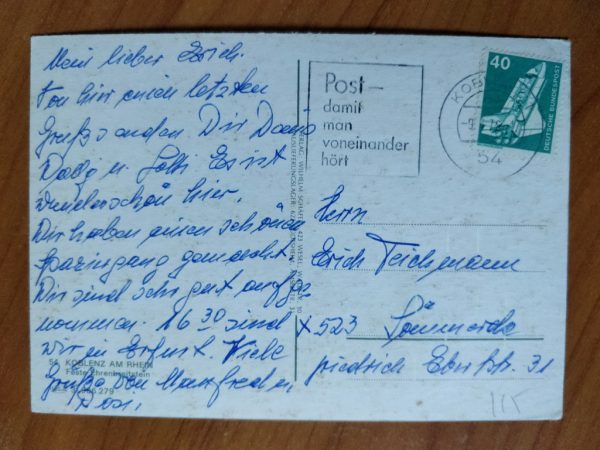 Mein lieber Erich.
Von hier einen letzten
Gruß senden Dir Deine
u. Es ist
wunderschön hier.
Wir haben einen schönen
Spaziergang gemacht
Wir sind sehr gut aufge
nommen. 16 30 sind
wir in Erfurt. Viele
Grüße von Manfred u.
Rosi.
54 KOBLENZ AM RHEIN
Feste Ehrenbreitstein
Post –
damit
man
voneinander
hört
KOBLENZ
54
40
DEUTSCHE BUNDESPOST
Herrn
Erich Teichmann
x 523 Sömmerda
Friedrich Ebertstr. 31
115